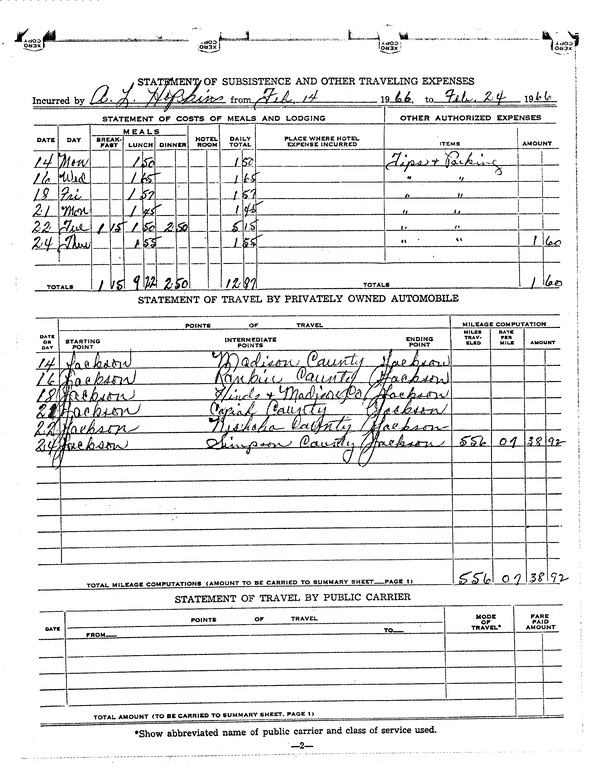 XEROX COPY XEROX COPY XEROX COPY XEROX COPY
STATEMENT OF SUBSISTENCE AND OTHER TRAVELING EXPENSES
Incurred by A. L. Hopkins from Feb. 14 1966, to Feb. 24 1966
STATEMENT OF COSTS OF MEALS AND LODGING OTHER AUTHORIZED EXPENSES
DATE DAY MEALS BREAK-FAST LUNCH DINNER HOTEL ROOM DAILY TOTAL PLACE WHERE HOTEL EXPENSE INCURRED ITEMS AMOUNT
14 Mon 1 50 1 50 Tips + Parking
16 Wed 1 65 1 65 " "
18 Fri 1 57 1 57 " "
21 Mon 1 45 1 45 " "
22 Tue 1 15 1 50 2 50 5 15 " "
24 Thur 1 55 1 55 " " 1 60
TOTALS 1 15 9 22 2 50 12 87 TOTALS 1 60
STATEMENT OF TRAVEL BY PRIVATELY OWNED AUTOMOBILE
POINTS OF TRAVEL MILEAGE COMPUTATION
DATE OR DAY STARTING POINT INTERMEDIATE POINTS ENDING POINT MILES TRAV-ELED RATE PER MILE AMOUNT
14 Jackson Madison County Jackson
16 Jackson Rankin County Jackson
18 Jackson Hinds + Madison Co Jackson
21 Jackson Copiah County Jackson
22 Jackson Neshoba County Jackson
24 Jackson Simpson County Jackson 556 07 38 92
TOTAL MILEAGE COMPUTATIONS (AMOUNT TO BE CARRIED TO SUMMARY SHEET—PAGE 1) 556 07 38 92
STATEMENT OF TRAVEL BY PUBLIC CARRIER
DATE POINTS OF TRAVEL MODE OF TRAVEL* FARE PAID AMOUNT
FROM— TO—
TOTAL AMOUNT (TO BE CARRIED TO SUMMARY SHEET. PAGE 1)
*Show abbreviated name of public carrier and class of service used.
—2—